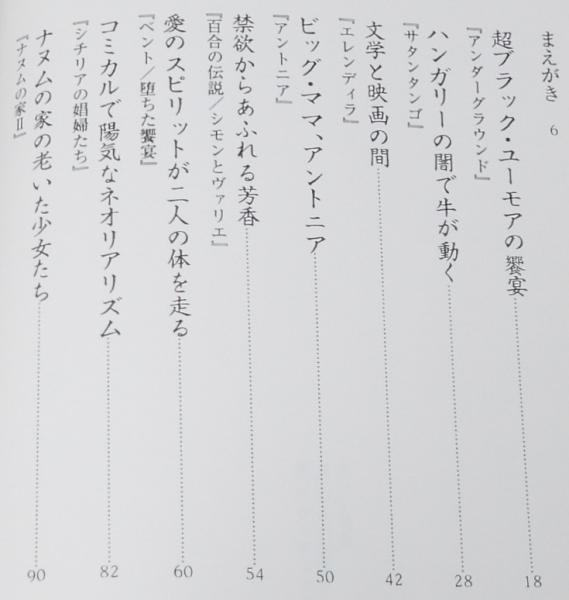 まえがき 6
超ブラック・ユーモアの饗宴 18
『アンダーグラウンド』
ハンガリーの闇で牛が動く 28
『サタンタンゴ』
文学と映画の間 42
『エレンディラ』
ビッグ・ママ、アントニア 50
『アントニア』
禁欲からあふれる芳香 54
『百合の伝説/シモンとヴァリエ』
愛のスピリットが二人の体を走る 60
『ベント/堕ちた饗宴』
コミカルで陽気なネオリアリズム 82
『シチリアの娼婦たち』
ナヌムの家の老いた少女たち 90
『ナヌムの家II』